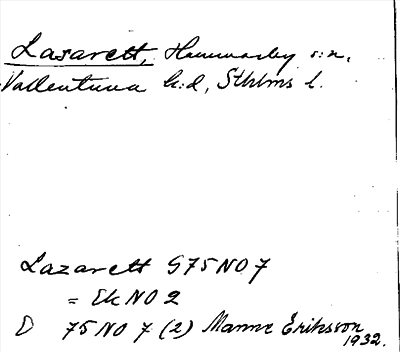 Lasarett, Hammarby s:n,
Vallentuna h:d, Sthlms l.
Lazarett G75NO7
= Ek NO 2
D 75 NO 7 (2) Manne Eriksson
1932.